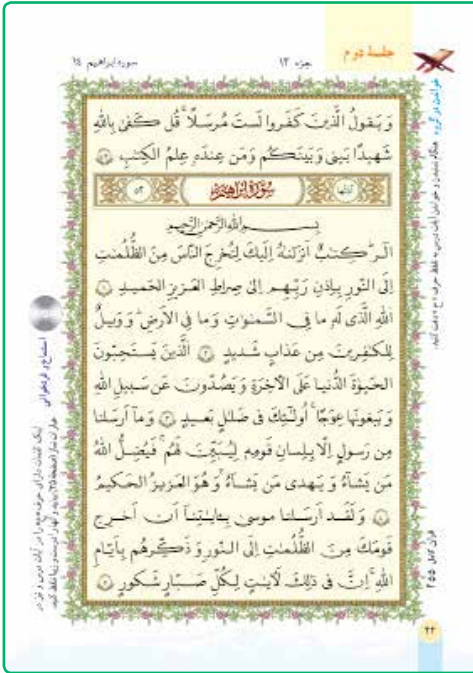 جلسهٔ دوم
جزء ۱۳
سوره ابراهیم ۱۴
وَ يَقولُ الَّذينَ كَفَروا لَستَ مُرسَلًا ۚ قُل كَفىٰ بِاللهِ
شَهيدًا بَيني وَ بَينَكُم وَ مَن عِندَهٗ عِلمُ الكِتٰبِ ۴۳
آیاتها
سُوْرَةُ اِبْرٰهِيْمَ
۵۲
بِسمِ اللهِ الرَّحمٰنِ الرَّحيمِ
الٓرٰ ۚ كِتٰبٌ اَنزَلنٰهُ اِلَيكَ لِتُخرِجَ النّاسَ مِنَ الظُّلُمٰتِ
اِلَى النّورِ بِاِذنِ رَبِّهِم اِلىٰ صِراطِ العَزيزِ الحَميدِ ۱
اللهِ الَّذي لَهٗ ما فِي السَّمٰوٰتِ وَ ما فِي الاَرضِ ۗ وَ وَيلٌ
لِلكٰفِرينَ مِن عَذابٍ شَديدٍ ۲ الَّذينَ يَستَحِبّونَ
الحَيوٰةَ الدُّنيا عَلَى الآخِرَةِ وَ يَصُدّونَ عَن سَبيلِ اللهِ
وَ يَبغونَها عِوَجًا ۚ اُولٰئِكَ في ضَلٰلٍ بَعيدٍ ۳ وَ ما اَرسَلنا
مِن رَسولٍ اِلّا بِلِسانِ قَومِهٖ لِيُبَيِّنَ لَهُم ۖ فَيُضِلُّ اللهُ
مَن يَشاءُ وَ يَهدي مَن يَشاءُ ۚ وَ هُوَ العَزيزُ الحَكيمُ
۴ وَ لَقَد اَرسَلنا موسىٰ بِـٔايٰتِنا اَن اَخرِج
قَومَكَ مِنَ الظُّلُمٰتِ اِلَى النّورِ وَ ذَكِّرهُم بِاَيّامِ
اللهِ ۚ اِنَّ في ذٰلِكَ لَاٰيٰتٍ لِكُلِّ صَبّارٍ شَكورٍ ۵
خواندن در گروه
استماع و فردخوانی
قرآن کامل ۲۵۵
۲۲